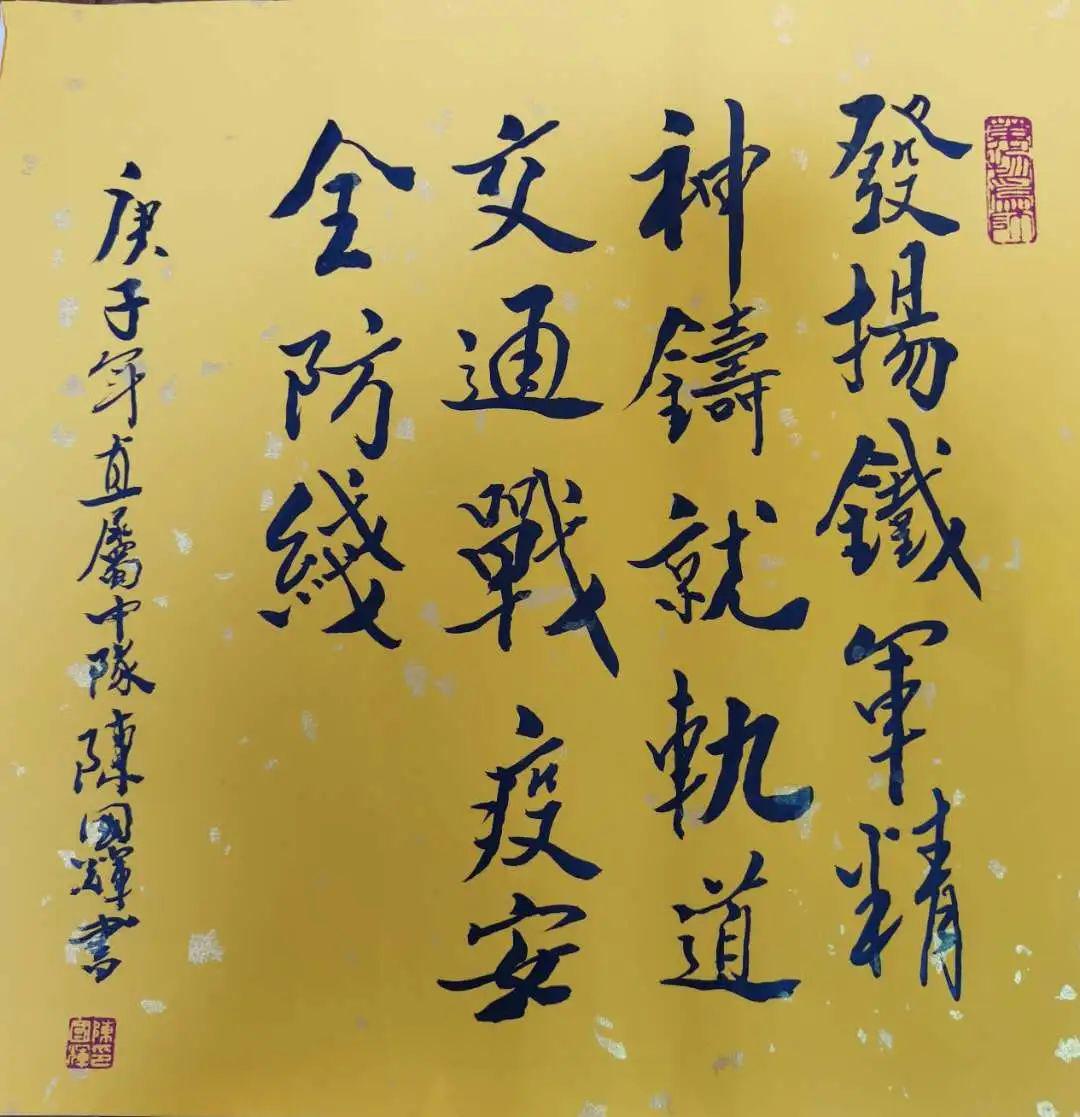 發揚鐵軍精
神鑄就軌道
交通戰疫安
全防綫
庚子年直屬中隊陳國輝書
陳國輝印